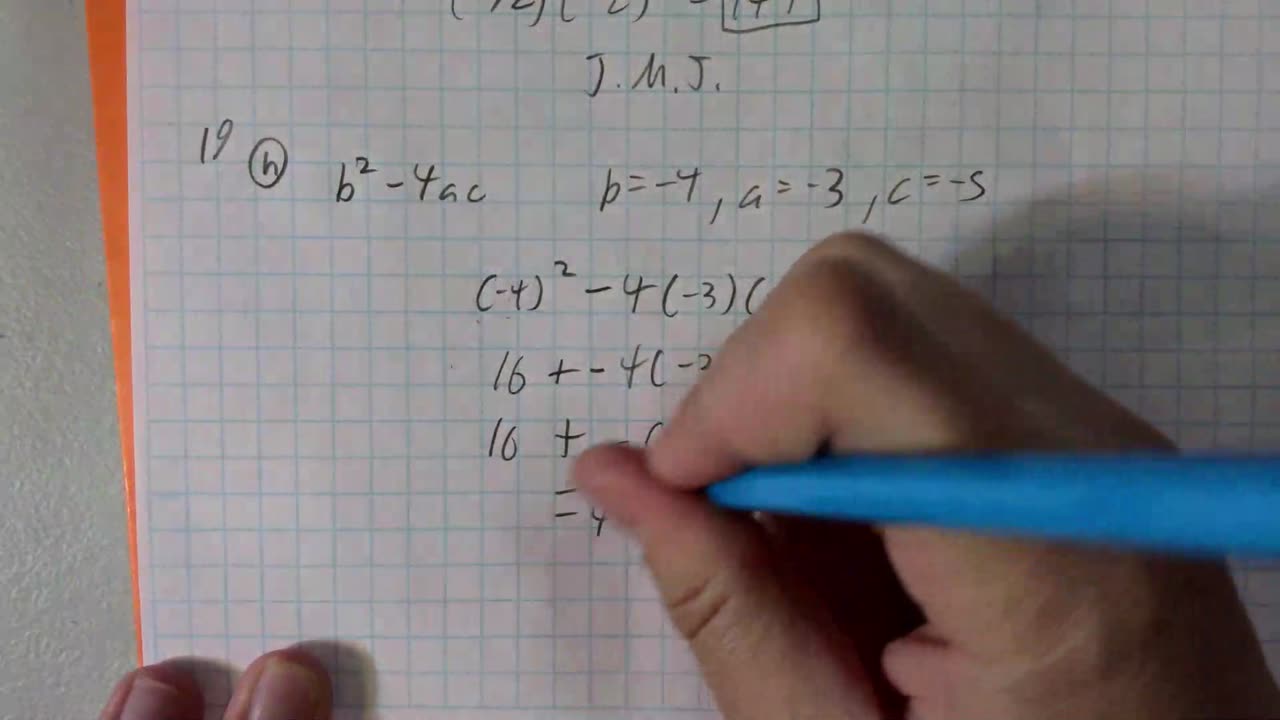 J.M.J.
19 (h) b² - 4ac b = -4, a = -3, c = -5
(-4)² - 4(-3)(
16 + -4(-3
16 + -
=